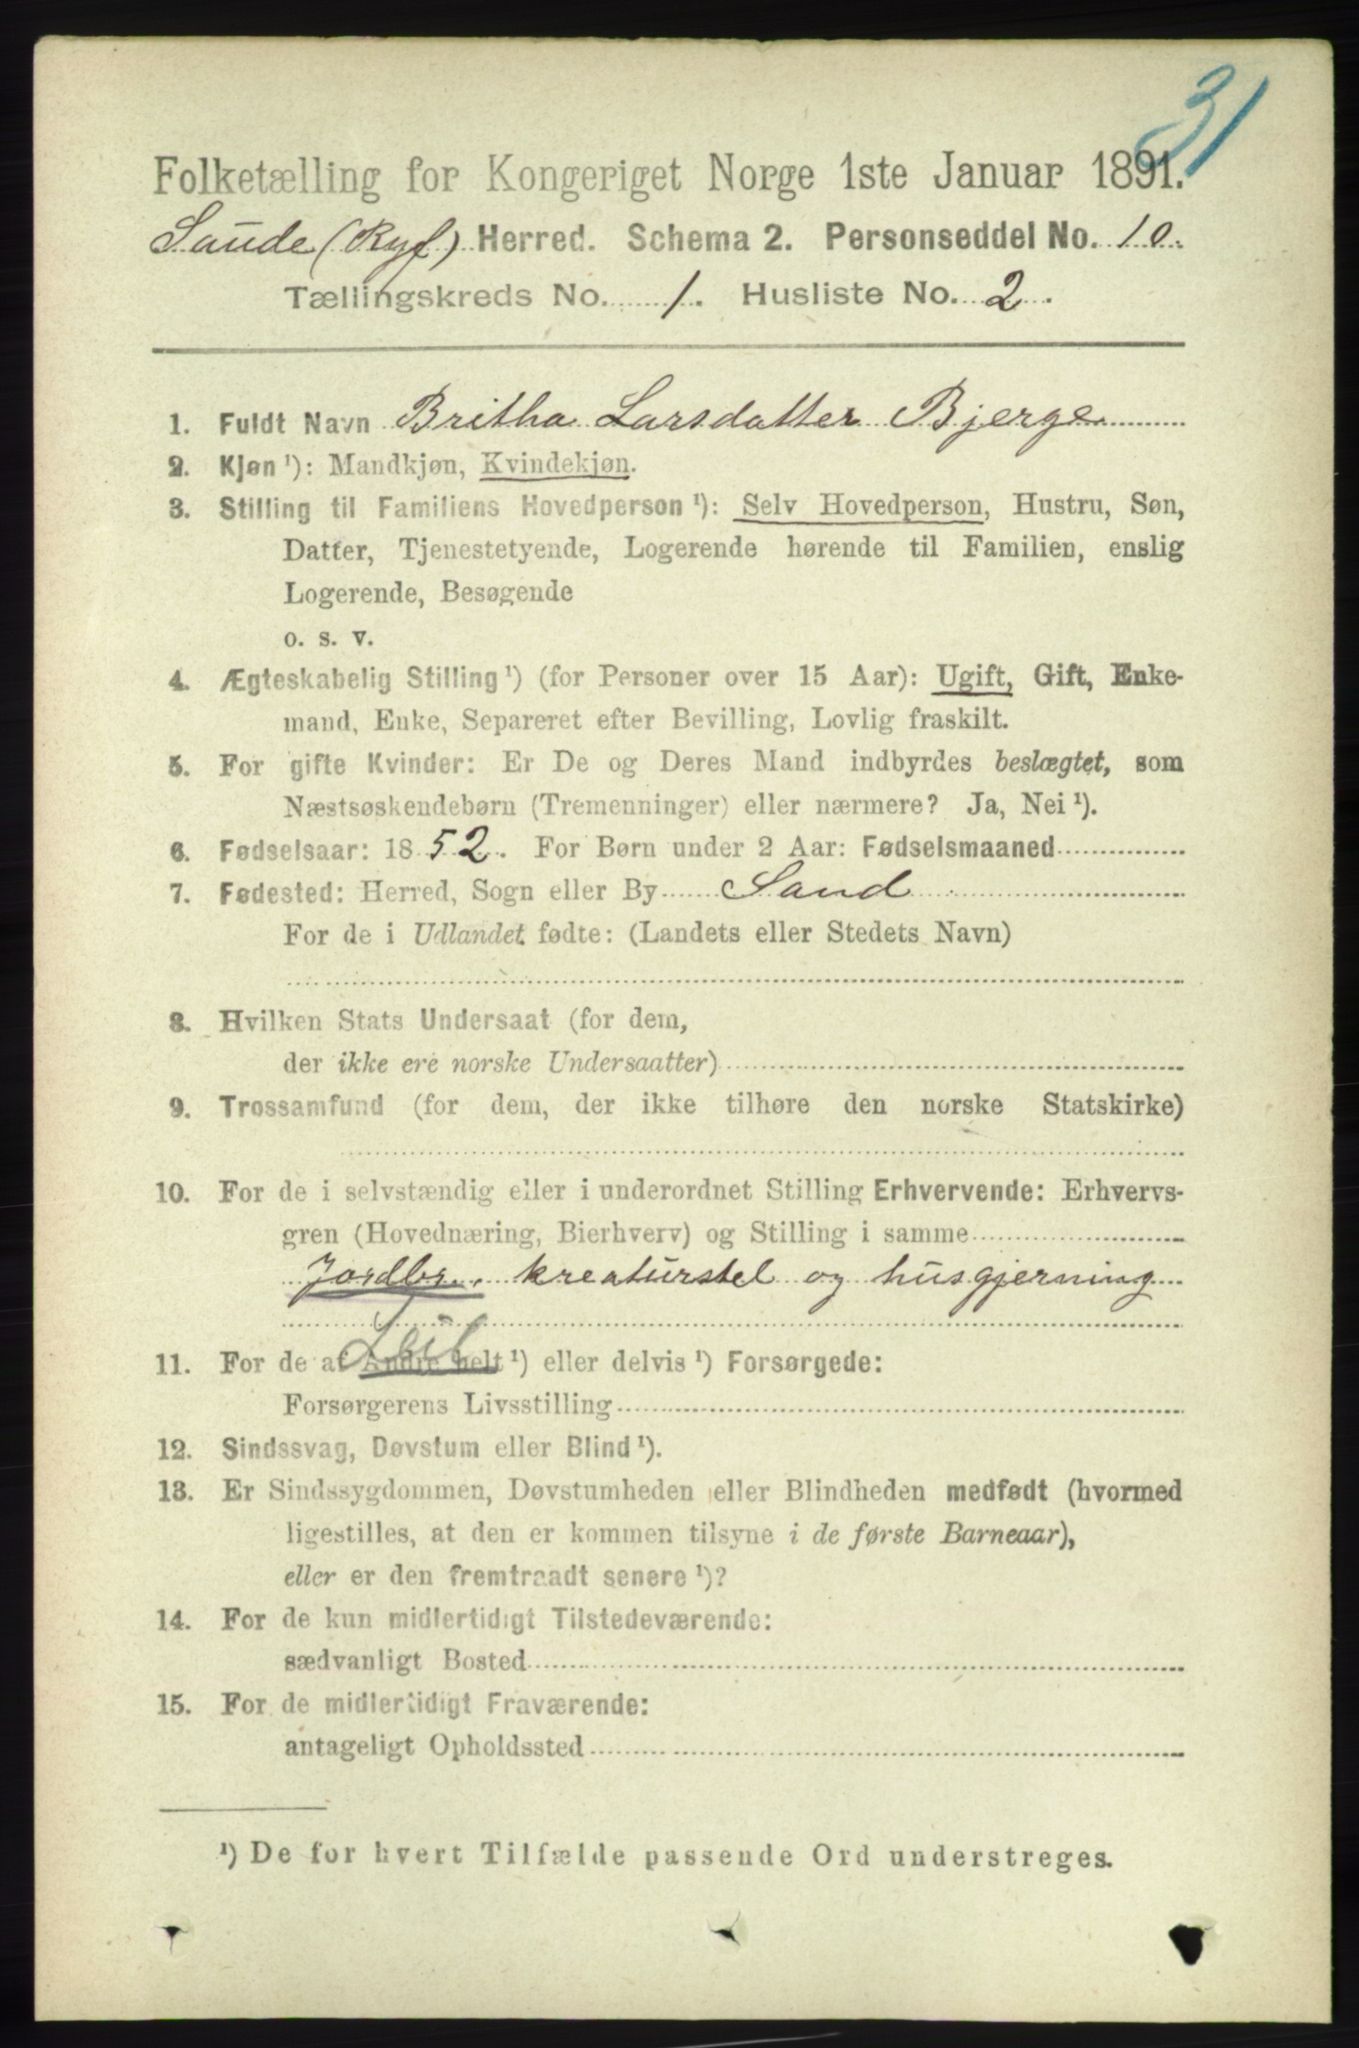 31
Folketælling for Kongeriget Norge 1ste Januar 1891.
Saude (Ryf) Herred. Schema 2. Personseddel No. 10.
Tællingskreds No. 1. Husliste No. 2.
1. Fuldt Navn Britha Larsdatter Bjerge
2. Kjøn ¹): Mandkjøn, Kvindekjøn.
3. Stilling til Familiens Hovedperson ¹): Selv Hovedperson, Hustru, Søn,
Datter, Tjenestetyende, Logerende hørende til Familien, enslig
Logerende, Besøgende
o. s. v.
4. Ægteskabelig Stilling ¹) (for Personer over 15 Aar): Ugift, Gift, Enke-
mand, Enke, Separeret efter Bevilling, Lovlig fraskilt.
5. For gifte Kvinder: Er De og Deres Mand indbyrdes beslægtet, som
Næstsøskendebørn (Tremenninger) eller nærmere? Ja, Nei ¹).
6. Fødselsaar: 1852. For Børn under 2 Aar: Fødselsmaaned
7. Fødested: Herred, Sogn eller By Sand
For de i Udlandet fødte: (Landets eller Stedets Navn)
8. Hvilken Stats Undersaat (for dem,
der ikke ere norske Undersaatter)
9. Trossamfund (for dem, der ikke tilhøre den norske Statskirke)
10. For de i selvstændig eller i underordnet Stilling Erhvervende: Erhvervs-
gren (Hovednæring, Bierhverv) og Stilling i samme
Jordbr. kreaturstel og husgjerning
11. For de af Andre helt ¹) eller delvis ¹) Forsørgede:
Forsørgerens Livsstilling
12. Sindssvag, Døvstum eller Blind ¹).
13. Er Sindssygdommen, Døvstumheden eller Blindheden medfødt (hvormed
ligestilles, at den er kommen tilsyne i de første Barneaar),
eller er den fremtraadt senere ¹)?
14. For de kun midlertidigt Tilstedeværende:
sædvanligt Bosted
15. For de midlertidigt Fraværende:
antageligt Opholdssted
¹) De for hvert Tilfælde passende Ord understreges.